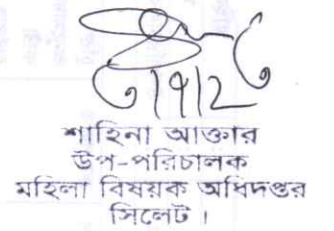 শাহিনা আক্তার
উপ-পরিচালক
মহিলা বিষয়ক অধিদপ্তর
সিলেট ।